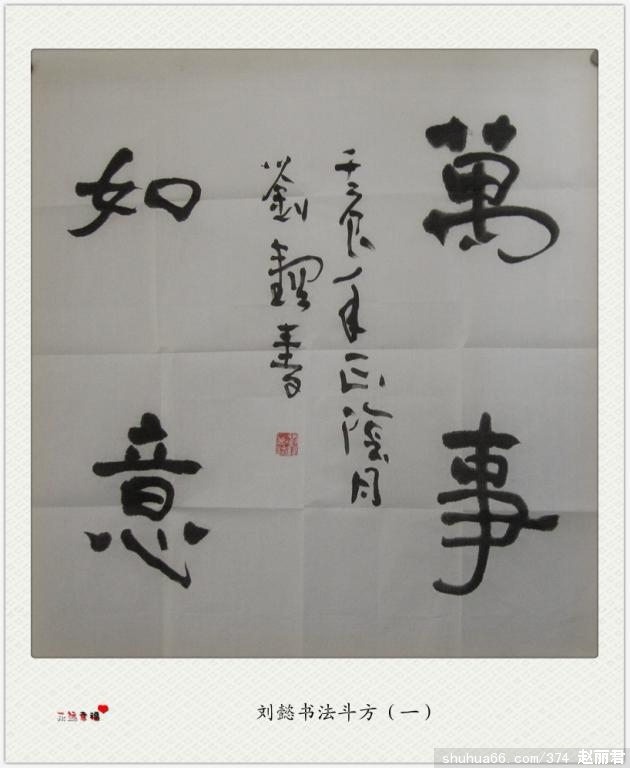 萬事
如意
壬辰年正陰月
劉懿書
刘懿书法斗方（一）
shuhua66.com/374 赵丽君